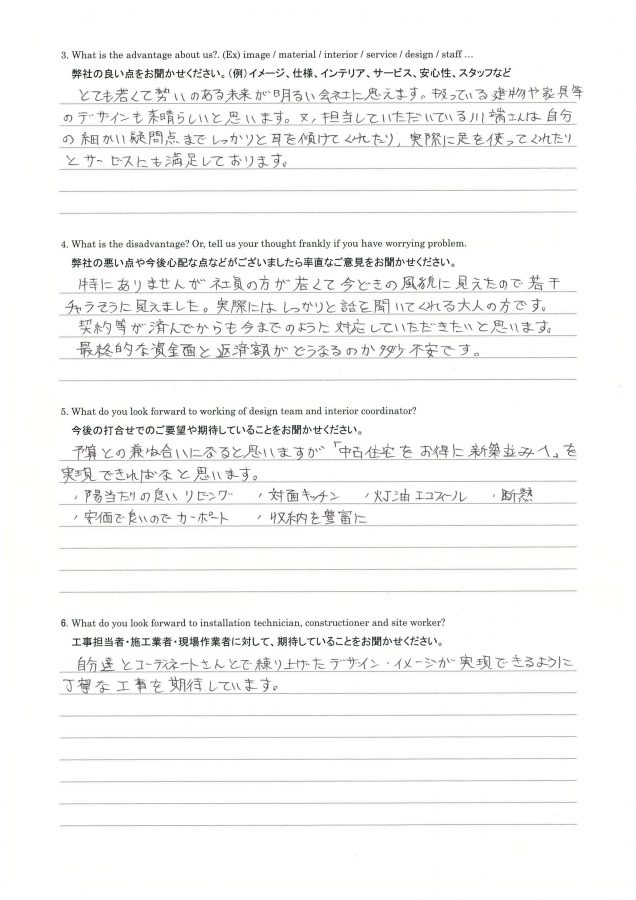 3. What is the advantage about us?. (Ex) image / material / interior / service / design / staff …
弊社の良い点をお聞かせください。(例)イメージ、仕様、インテリア、サービス、安心性、スタッフなど
とても若くて勢いのある未来が明るい会社に思えます。扱っている建物や家具等
のデザインも素晴らしいと思います。又、担当していただいている川端さんは自分
の細かい疑問点までしっかりと耳を傾けてくれたり、実際に足を使ってくれたり
とサービスにも満足しております。
4. What is the disadvantage? Or, tell us your thought frankly if you have worrying problem.
弊社の悪い点や今後心配な点などがございましたら率直なご意見をお聞かせください。
特にありませんが社員の方が若くて今どきの風貌に見えたので若干
チャラそうに見えました。実際にはしっかりと話を聞いてくれる大人の方です。
契約等が済んでからも今までのように対応していただきたいと思います。
最終的な資金面と返済額がどうなるのか少々不安です。
5. What do you look forward to working of design team and interior coordinator?
今後の打合せでのご要望や期待していることをお聞かせください。
予算との兼ね合いになると思いますが「中古住宅をお得に新築並みへ」を
実現できればなと思います。
・陽当たりの良いリビング ・対面キッチン ・灯油エコフィール ・断熱
・安価で良いのでカーポート ・収納を豊富に
6. What do you look forward to installation technician, constructioner and site worker?
工事担当者・施工業者・現場作業者に対して、期待していることをお聞かせください。
自分達とコーディネートさんとで練り上げたデザイン・イメージが実現できるように
丁寧な工事を期待しています。